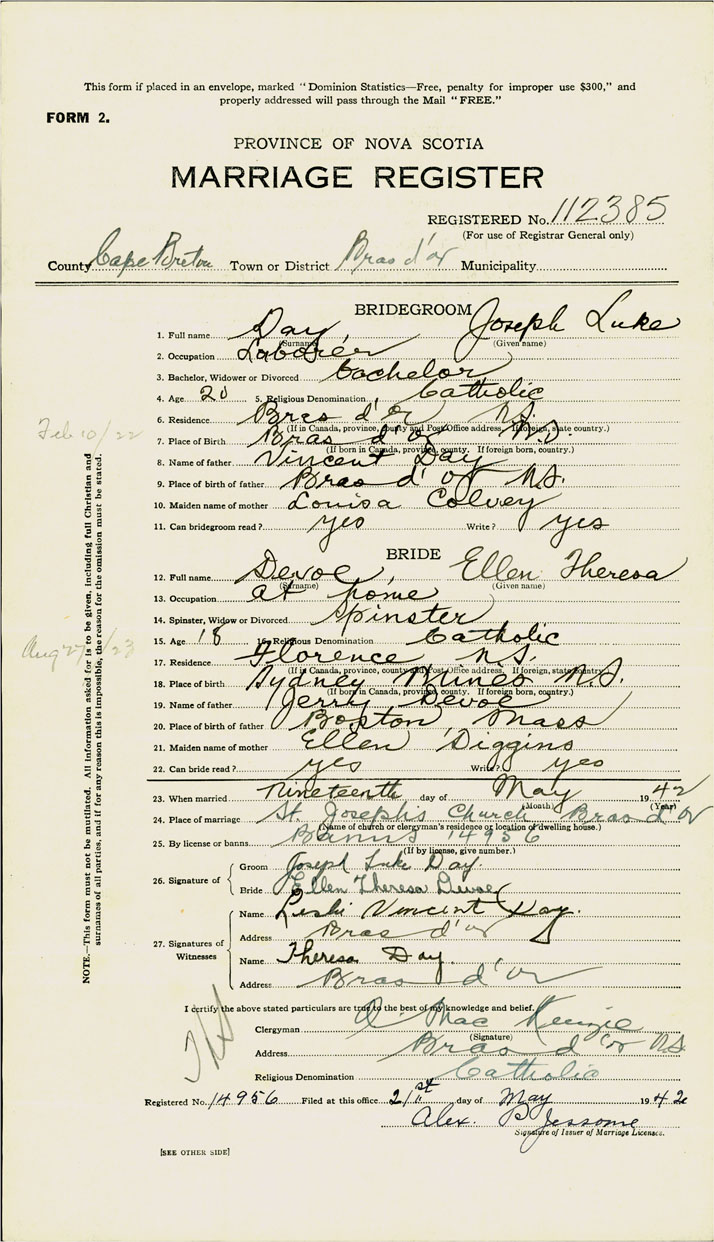 This form if placed in an envelope, marked "Dominion Statistics—Free, penalty for improper use $300," and
properly addressed will pass through the Mail "FREE."
FORM 2.
PROVINCE OF NOVA SCOTIA
MARRIAGE REGISTER
REGISTERED No. 112385
(For use of Registrar General only)
County Cape Breton Town or District Bras d'or Municipality
BRIDEGROOM
1. Full name Day Joseph Luke
(Surname) (Given name)
2. Occupation Laborer
3. Bachelor, Widower or Divorced Bachelor
4. Age 20 5. Religious Denomination Catholic
6. Residence Bras d'or N.S.
(If is Canada, province, county and Post Office address. If foreign, state country.)
7. Place of Birth Bras d'or N.S.
(If born in Canada, province, county. If foreign born, country.)
8. Name of father Vincent Day
9. Place of birth of father Bras d'or N.S.
10. Maiden name of mother Louisa Colvey
11. Can bridegroom read? yes Write? yes
BRIDE
12. Full name Devoe Ellen Theresa
(Surname) (Given name)
13. Occupation at home
14. Spinster, Widow or Divorced Spinster
15. Age 18 16. Religious Denomination Catholic
17. Residence Florence N.S.
(If is Canada, province, county and Post Office address. If foreign, state country.)
18. Place of birth Sydney Mines N.S.
(If born in Canada, province, county. If foreign born, country.)
19. Name of father Jerry Devoe
20. Place of birth of father Boston Mass
21. Maiden name of mother Ellen Diggins
22. Can bride read? yes Write? yes
23. When married nineteenth day of May 1942
(Month) (Year)
24. Place of marriage St. Joseph's Church Bras d'or
(Name of church or clergyman's residence or location of dwelling house.)
25. By license or banns Banns 14956
(If by license, give number.)
26. Signature of
Groom Joseph Luke Day
Bride Ellen Theresa Devoe
27. Signatures of Witnesses
Name Vincent Day
Address Bras d'or
Name Theresa Day
Address Bras d'or
I certify the above stated particulars are true to the best of my knowledge and belief.
Clergyman Mac Kenzie
(Signature)
Address Bras d'or N.S.
Religious Denomination Catholic
Registered No. 14956 Filed at this office 21st day of May 1942
Alex. P. Jessome
Signature of Issuer of Marriage Licenses.
[SEE OTHER SIDE]
NOTE.—This form must not be mutilated. All information asked for is to be given, including full Christian and
surnames of all parties, and if for any reason this is impossible, the reason for the omission must be stated.
Feb 10/22